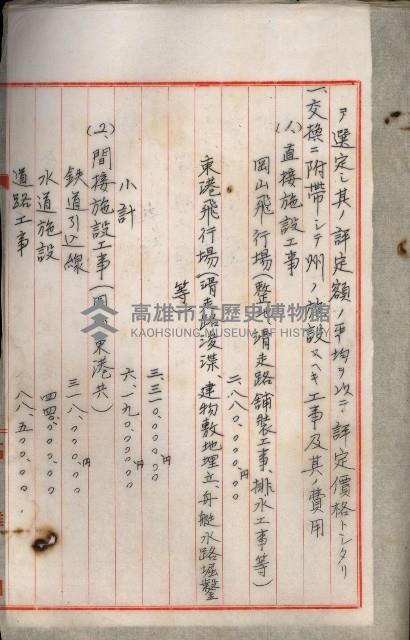 ヲ選定シ其ノ評定額ノ平均ヲ以テ評定価格トシタリ
一、交換ニ附帯シテ州ノ施設スヘキ工事及其ノ費用
(1)、直接施設工事
岡山飛行場(整地、滑走路舗装工事、排水工事等)
二、八八〇、〇〇〇円
東港飛行場(滑走路浚渫、建物敷地埋立、舟艇水路堀鑿
等)
三、三一〇、〇〇〇円
小計
六、一九〇、〇〇〇円
(2)、間接施設工事(岡山、東港共)
鉄道引込線
三一八、〇〇〇円
水道施設
四四〇、〇〇〇
道路工事
八八五、〇〇〇
高雄市立歷史博物館
KAOHSIUNG MUSEUM OF HISTORY